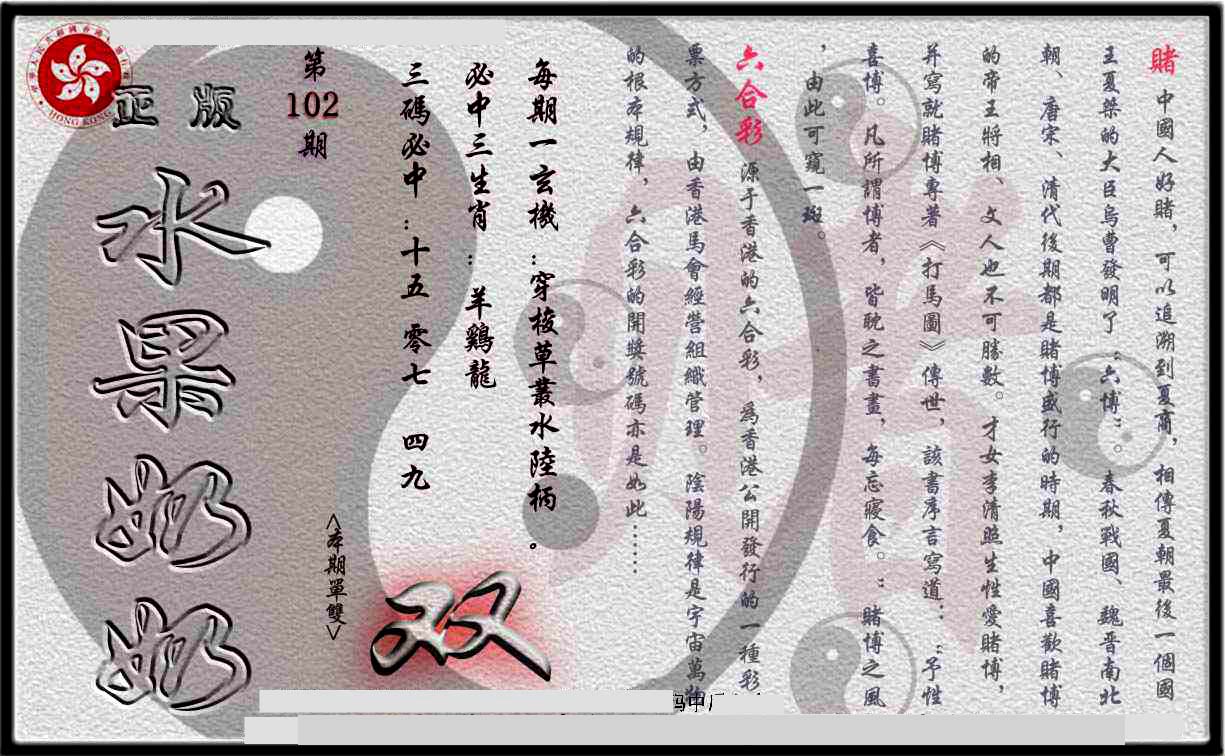 賭 中國人好賭，可以追溯到夏商，相傳夏朝最後一個國
王夏桀的大臣烏曹發明了“六博”。春秋戰國、魏晋南北
朝、唐宋、清代後期都是賭博盛行的時期，中國喜歡賭博
的帝王將相、文人也不可勝數。才女李清照生性愛賭博，
并寫就賭博專著《打馬圖》傳世，該書序言寫道：“予性
喜博。凡所謂博者，皆耽之書畫，每忘寢食。”賭博之風
，由此可窺一斑。
六合彩 源于香港的六合彩，爲香港公開發行的一種彩
票方式，由香港馬會經營組織管理。陰陽規律是宇宙萬物
的根本規律，六合彩的開獎號碼亦是如此……
每期一玄機：穿梭草叢水陸柄。
必中三生肖：羊鷄龍
三碼必中：十五 零七 四九
第
102
期
<本期單雙>
双
正版
水果奶奶
HONG KONG